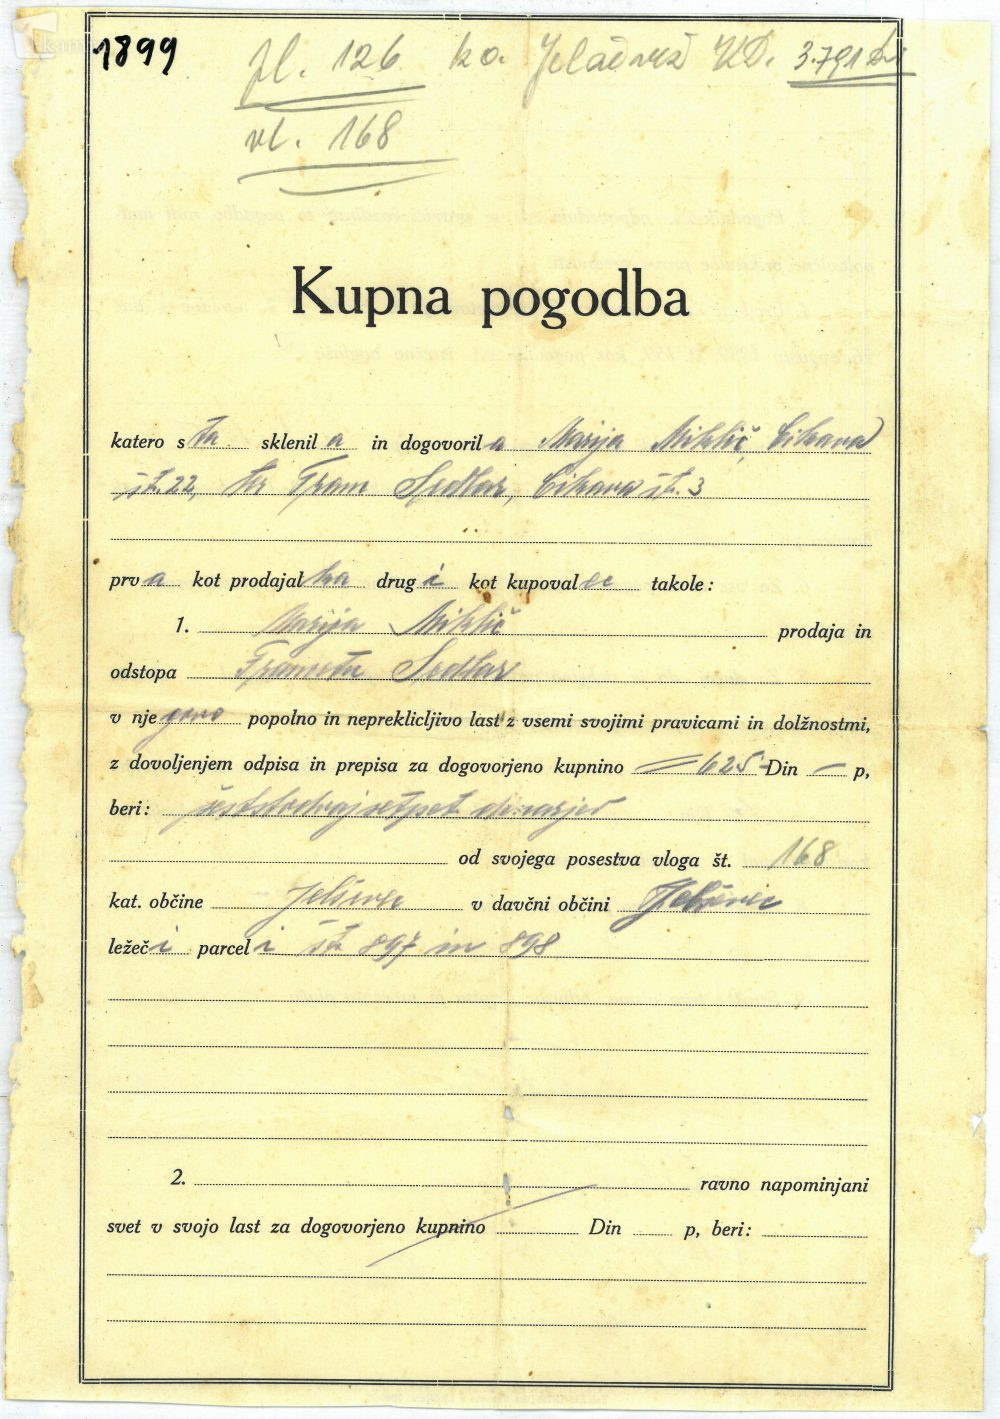 1899
vl. 126 ko. KD. 3.791
vl. 168
Kupna pogodba
katero sta sklenila in dogovorila Marija Miklič, Cikava
št. 22, ter Franc Sedlar, Cikava št. 3
prva kot prodajalka drugi kot kupovalec takole:
1. Marija Miklič prodaja in
odstopa Francetu Sedlar
v njegovo popolno in nepreklicljivo last z vsemi svojimi pravicami in dolžnostmi,
z dovoljenjem odpisa in prepisa za dogovorjeno kupnino = 625 - Din — p,
beri: šeststodvajsetpet dinarjev
od svojega posestva vloga št. 168
kat. občine Jelševec v davčni občini Jelševec
ležeči parceli št. 897 in 898
2. ravno napominjani
svet v svojo last za dogovorjeno kupnino Din p, beri: